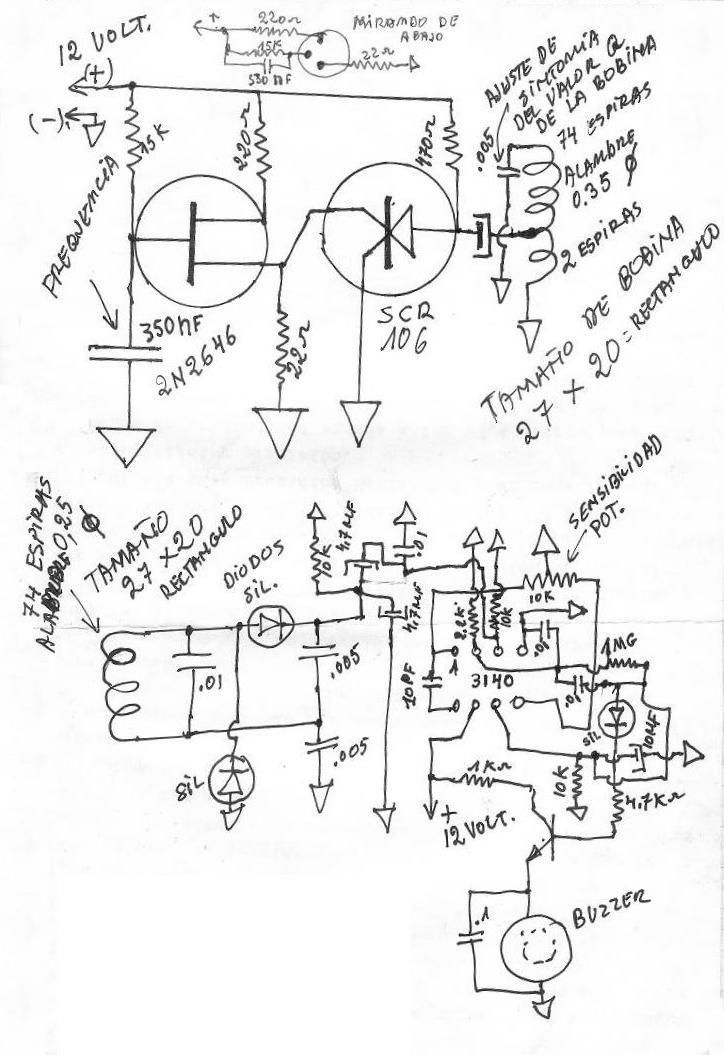 220Ω
+
15K
530 nF
22Ω
MIRANDO DE
ABAJO
12 VOLT.
(+)
(-)
15K
220Ω
470Ω
FREQUENCIA
350nF
2N2646
22Ω
SCR
106
.005
AJUSTE DE
SINTONIA
DEL VALOR Q
DE LA BOBINA
74 ESPIRAS
ALAMBRE
0.35 Ø
2 ESPIRAS
TAMAÑO DE BOBINA
27 X 20 = RECTANGULO
74 ESPIRAS
0,25 Ø
TAMAÑO
27 X 20
RECTANGULO
DIODOS
SIL.
10K
4,7MF
.01
4,7MF
.01
.005
.005
SIL
SENSIBILIDAD
POT.
10K
2.2K
10K
.01
1MG
10PF
1
3140
.01
SIL
10MF
1KΩ
10K
4.7KΩ
+
12 VOLT.
.1
BUZZER